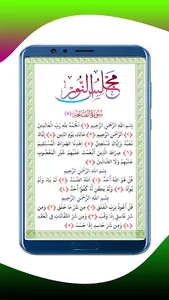 مجالس النور
سورة الفاتحة (٧)
بِسْمِ اللَّهِ الرَّحْمَنِ الرَّحِيمِ (١) الْحَمْدُ لِلَّهِ رَبِّ الْعَالَمِينَ
(٢) الرَّحْمَنِ الرَّحِيمِ (٣) مَالِكِ يَوْمِ الدِّينِ (٤) إِيَّاكَ نَعْبُدُ
وَإِيَّاكَ نَسْتَعِينُ (٥) اهْدِنَا الصِّرَاطَ الْمُسْتَقِيمَ
(٦) صِرَاطَ الَّذِينَ أَنْعَمْتَ عَلَيْهِمْ غَيْرِ الْمَغْضُوبِ
عَلَيْهِمْ وَلَا الضَّالِّينَ (٧)
بِسْمِ اللَّهِ الرَّحْمَنِ الرَّحِيمِ
قُلْ هُوَ اللَّهُ أَحَدٌ (١) اللَّهُ الصَّمَدُ (٢) لَمْ يَلِدْ
وَلَمْ يُولَدْ (٣) وَلَمْ يَكُنْ لَهُ كُفُوًا أَحَدٌ (٤)
بِسْمِ اللَّهِ الرَّحْمَنِ الرَّحِيمِ
قُلْ أَعُوذُ بِرَبِّ الْفَلَقِ (١) مِنْ شَرِّ مَا خَلَقَ (٢) وَمِنْ شَرِّ
غَاسِقٍ إِذَا وَقَبَ (٣) وَمِنْ شَرِّ النَّفَّاثَاتِ فِي الْعُقَدِ
(٤) وَمِنْ شَرِّ حَاسِدٍ إِذَا حَسَدَ (٥)